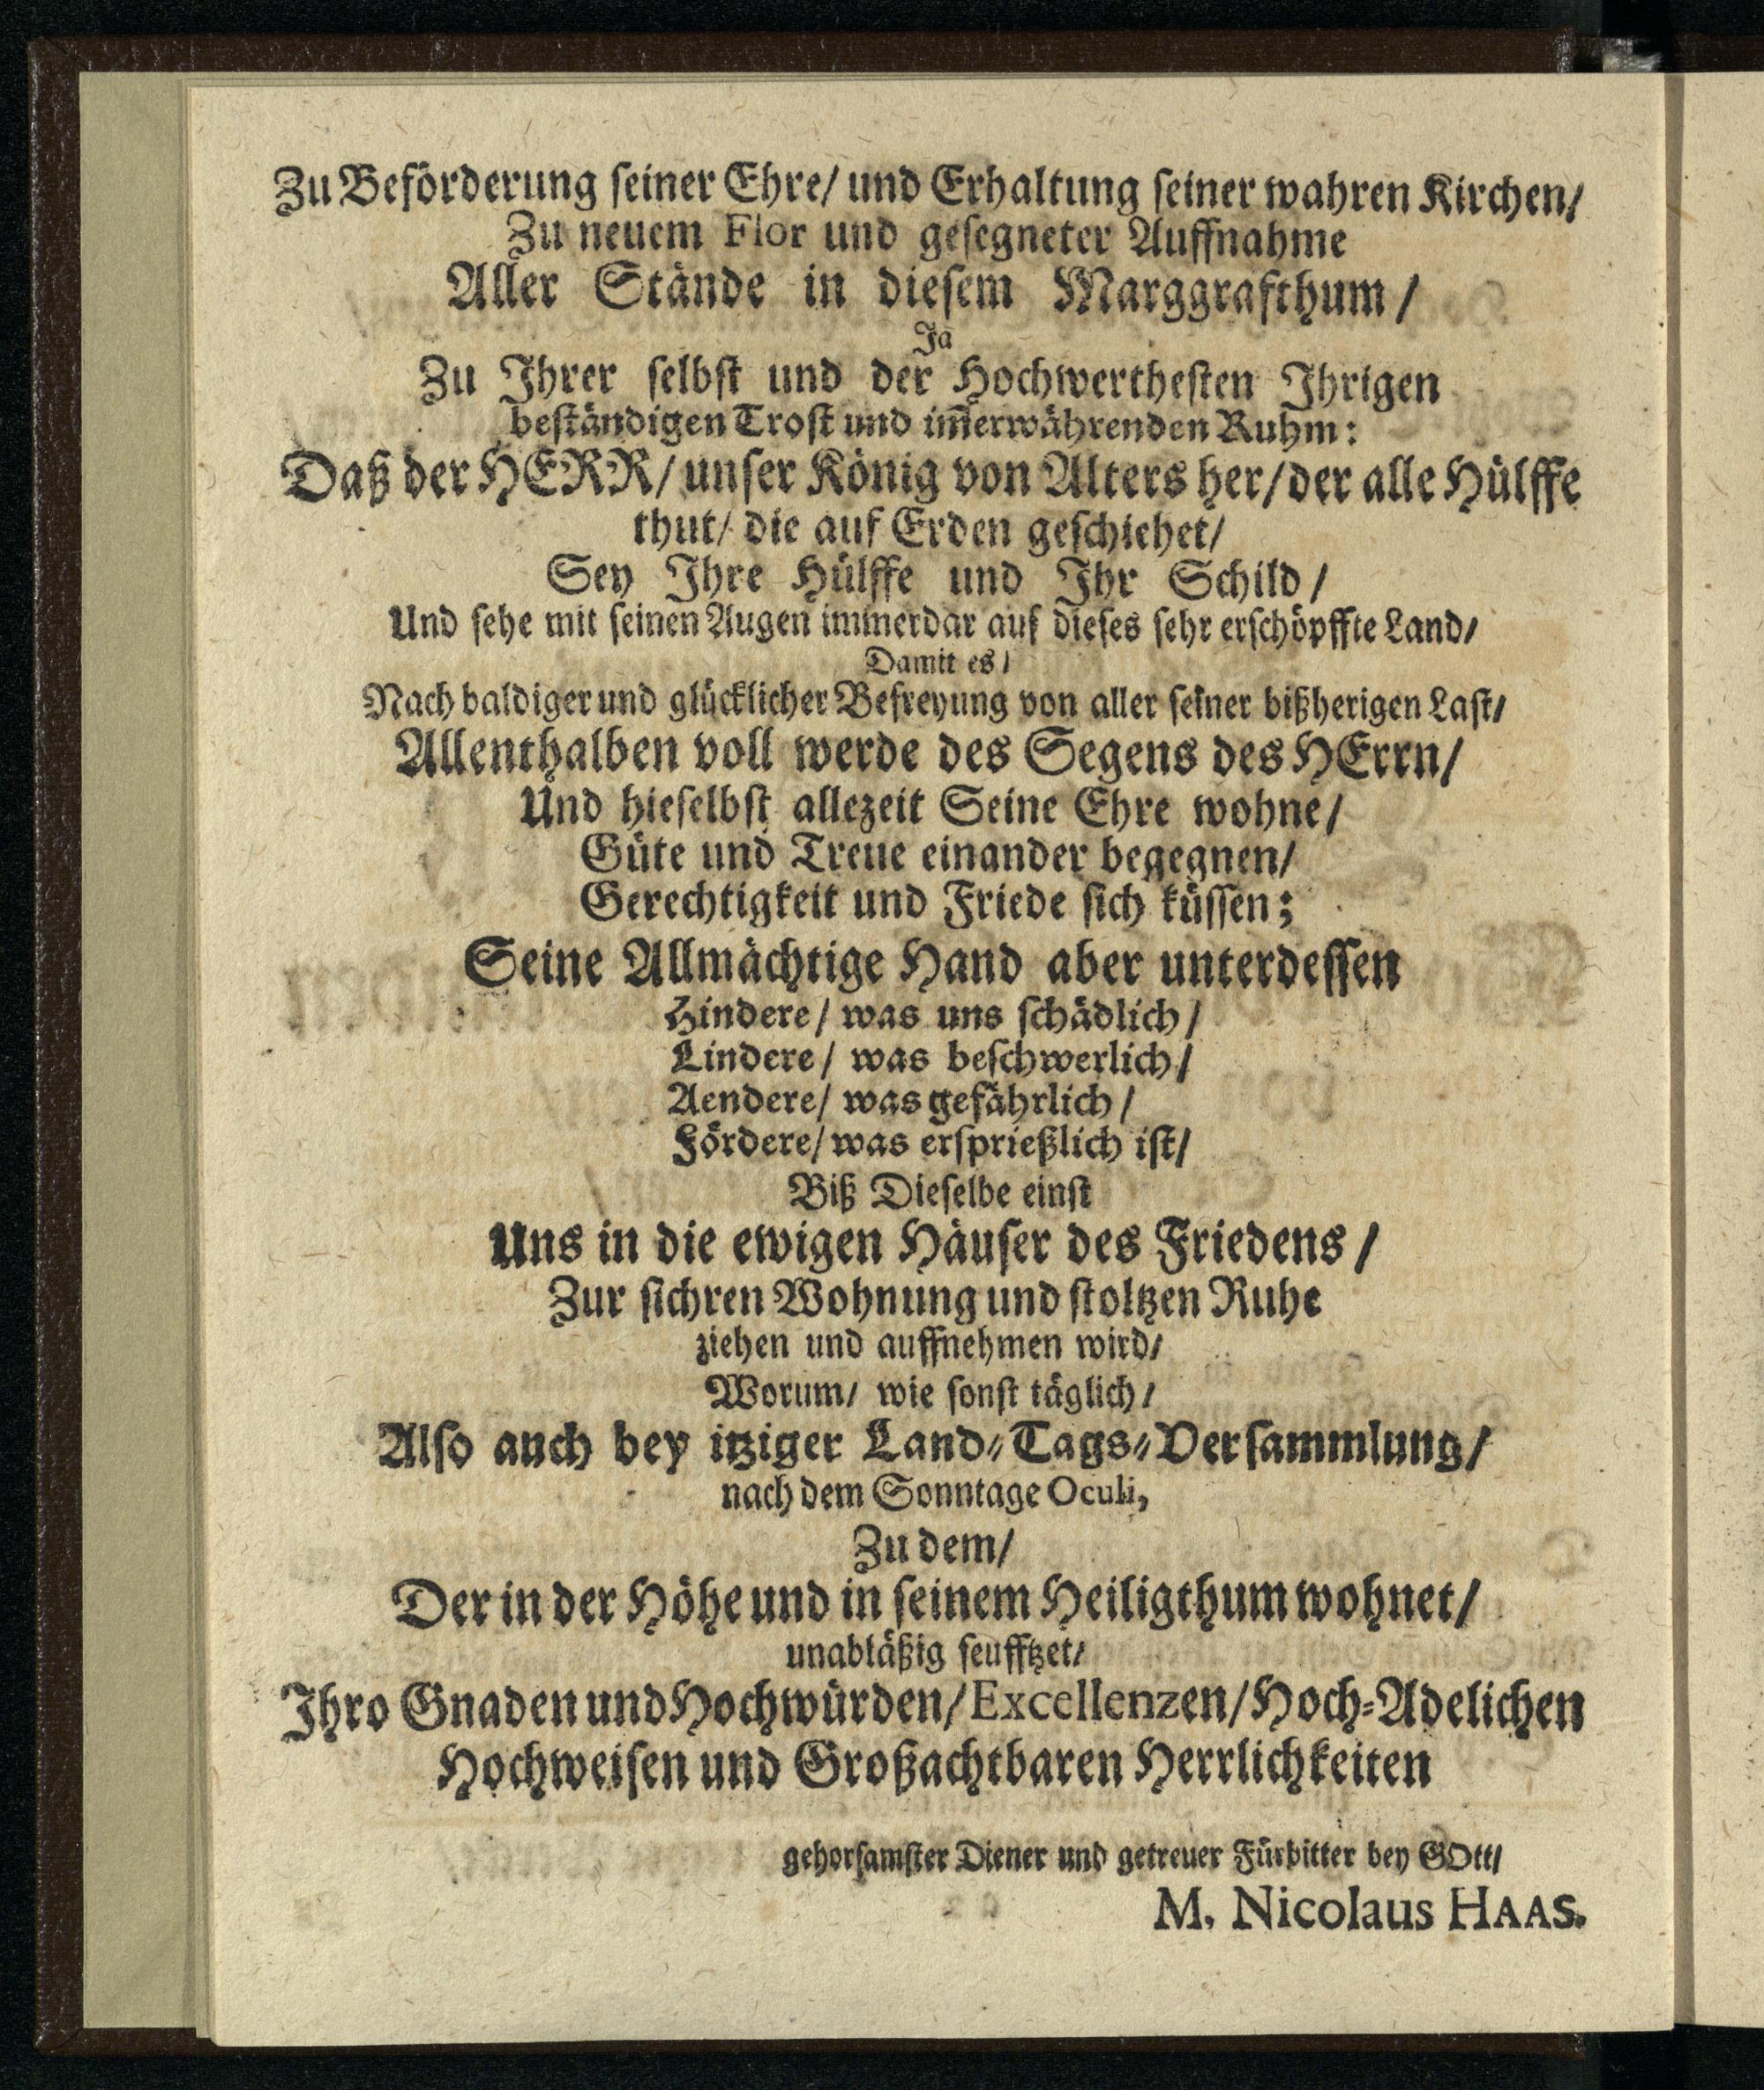 Zu Beförderung ſeiner Ehre/ und Erhaltung ſeiner wahren Kirchen/
Zu neuem Flor und geſegneter Auffnahme
Aller Stände in dieſem Marggrafthum/
Ja
Zu Ihrer ſelbſt und der Hochwertheſten Ihrigen
beſtändigen Troſt und im̃erwährenden Ruhm:
Daß der HERR/ unſer König von Alters her/ der alle Hülffe
thut/ die auf Erden geſchiehet/
Sey Ihre Hülffe und Ihr Schild/
Und ſehe mit ſeinen Augen immerdar auf dieſes ſehr erſchöpffte Land/
Damit es/
Nach baldiger und glücklicher Befreyung von aller ſeiner bißherigen Laſt/
Allenthalben voll werde des Segens des HErrn/
Und hieſelbſt allezeit Seine Ehre wohne/
Güte und Treue einander begegnen/
Gerechtigkeit und Friede ſich küſſen;
Seine Allmächtige Hand aber unterdeſſen
Hindere/ was uns ſchädlich/
Lindere/ was beſchwerlich/
Aendere/ was gefährlich/
Fördere/ was erſprießlich iſt/
Biß Dieſelbe einſt
Uns in die ewigen Häuſer des Friedens/
Zur ſichren Wohnung und ſtoltzen Ruhe
ziehen und auffnehmen wird/
Worum/ wie ſonſt täglich/
Alſo auch bey itziger Land⸗Tags⸗Verſammlung/
nach dem Sonntage Oculi,
Zu dem/
Der in der Höhe und in ſeinem Heiligthum wohnet/
unabläßig ſeufftzet/
Ihro Gnaden und Hochwürden/ Excellenzen/ Hoch⸗Adelichen
Hochweiſen und Großachtbaren Herrlichkeiten
gehorſamſter Diener und getreuer Fürbitter bey GOtt/
M. Nicolaus HAAS.